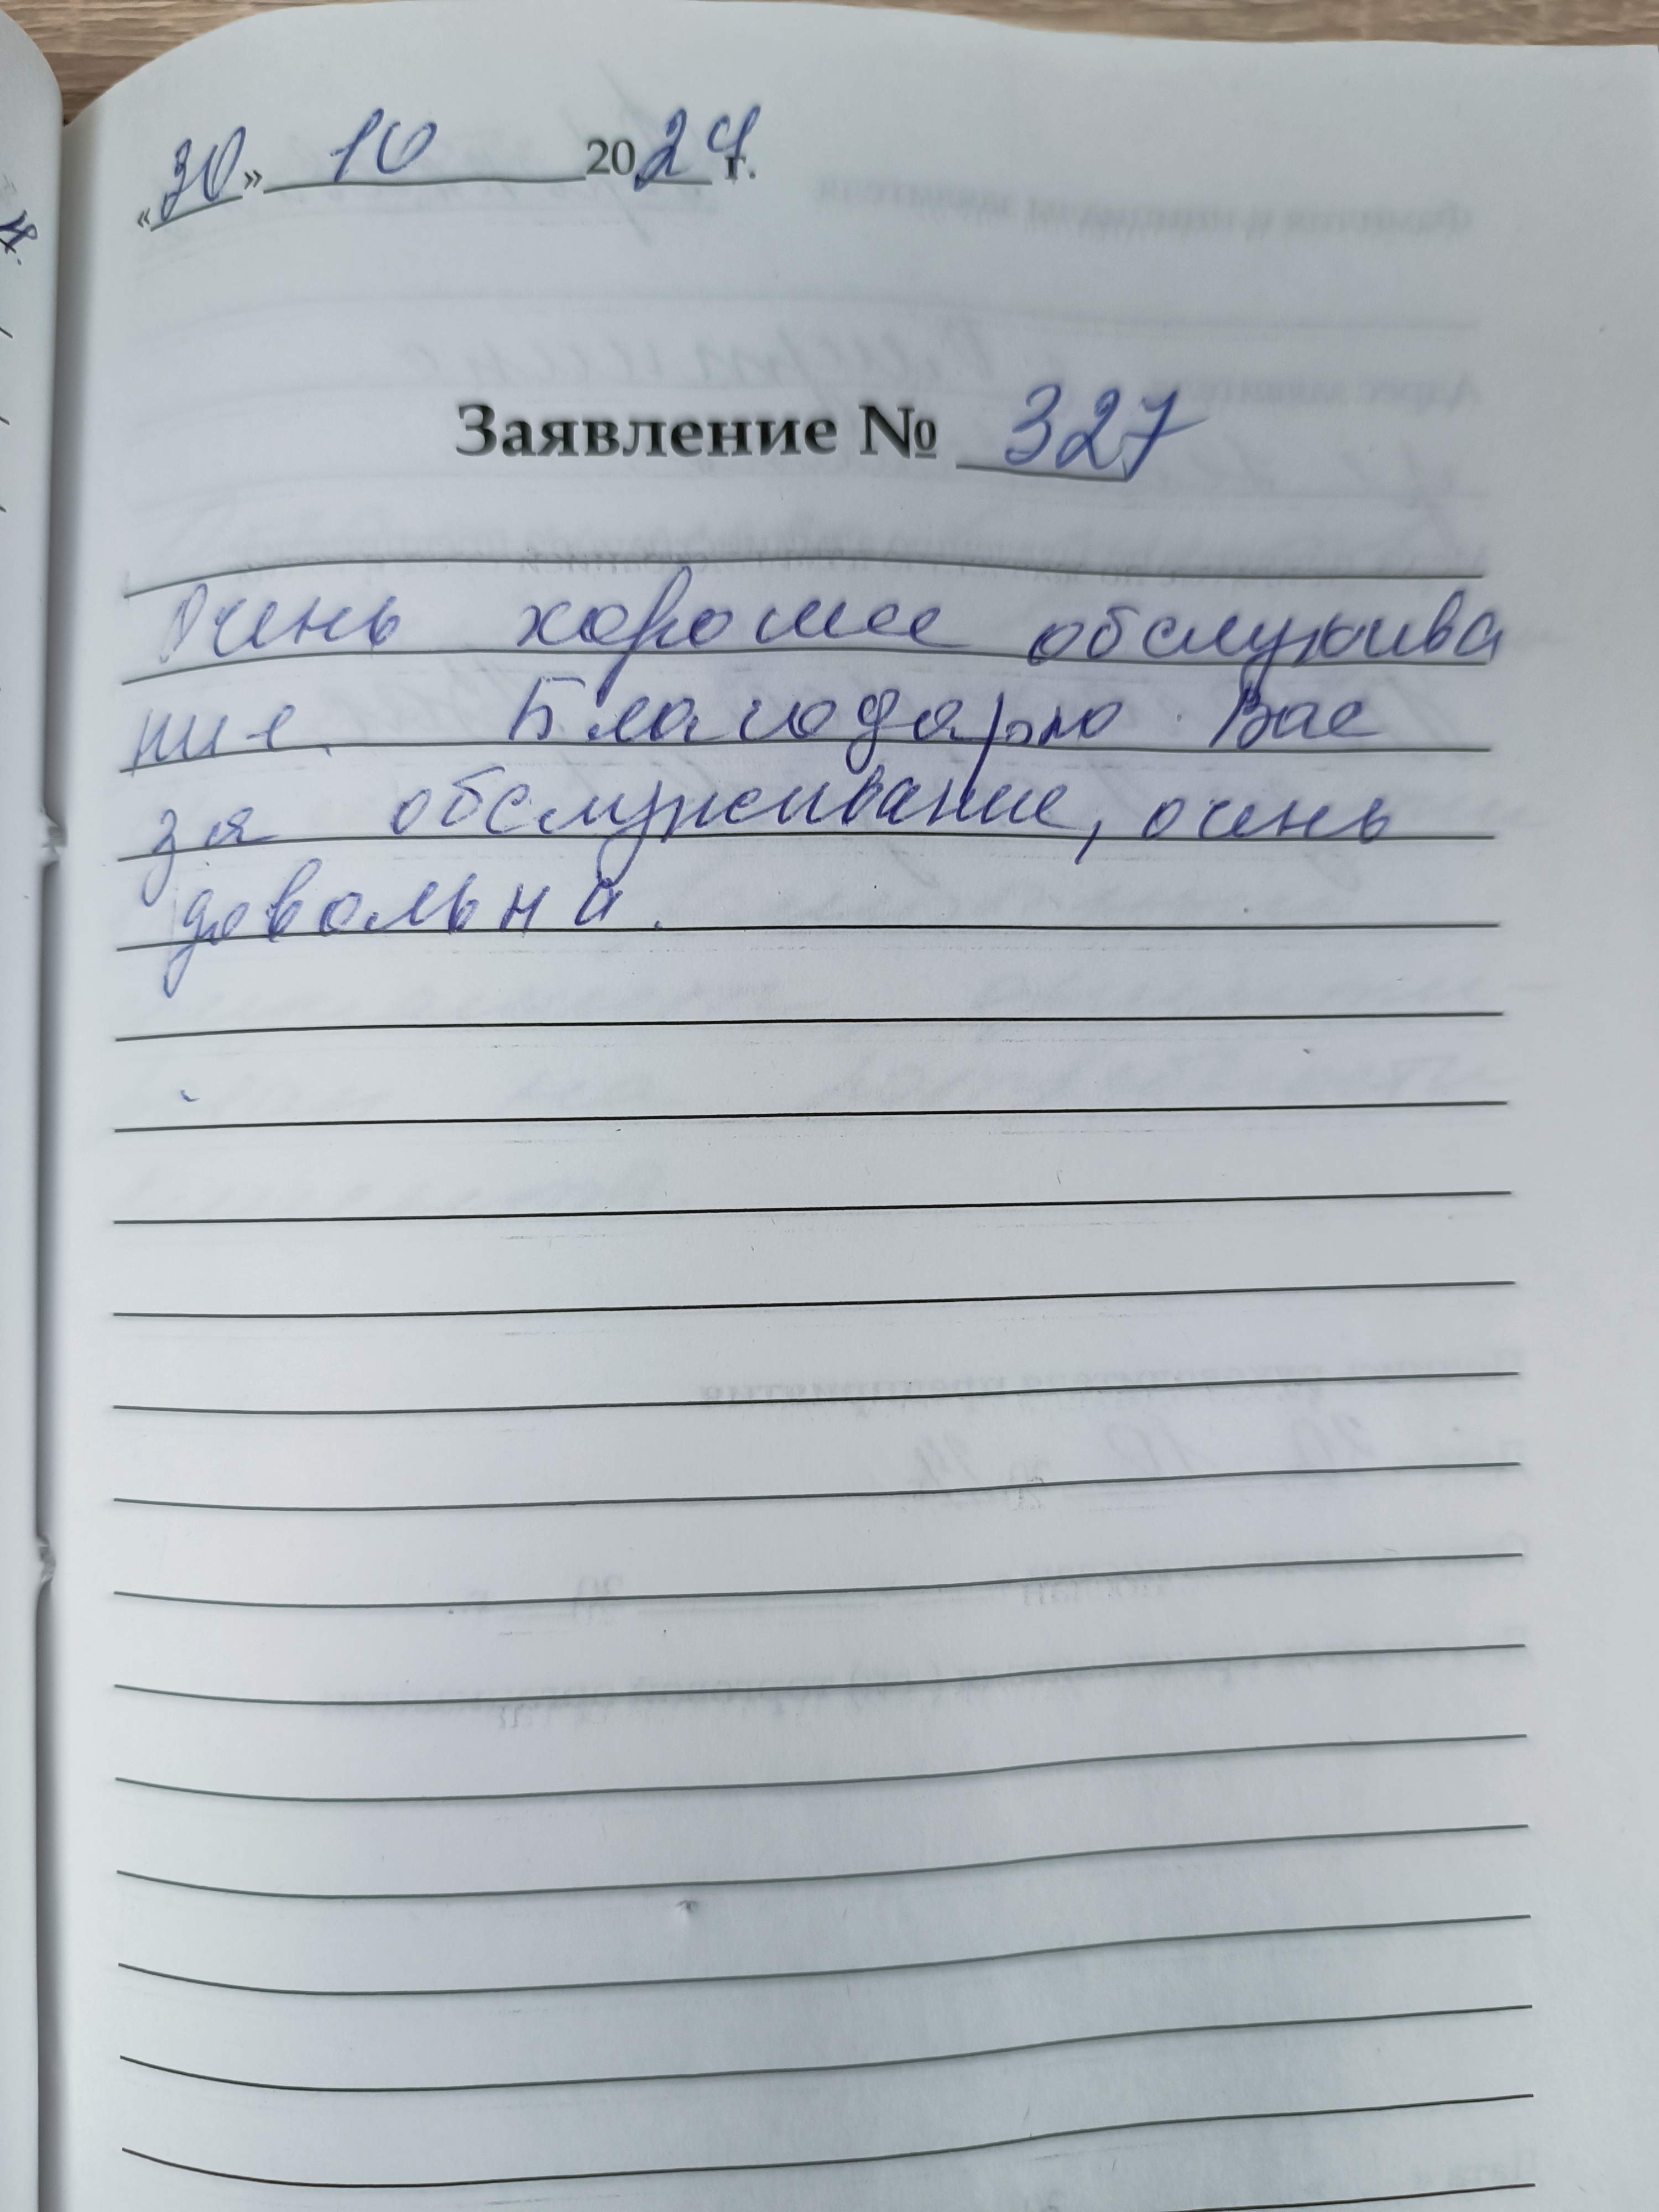 «30» 10 2024 г.
Заявление № 327
Очень хорошее обслужива
ние. Благодарю Вас
за обслуживание, очень
довольна.